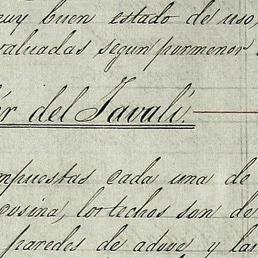 muy buen estado de uso,
valuadas segun pormenor
er del Javali.
mpuestas cada una de
cosina, los techos son de
paredes de adove y las